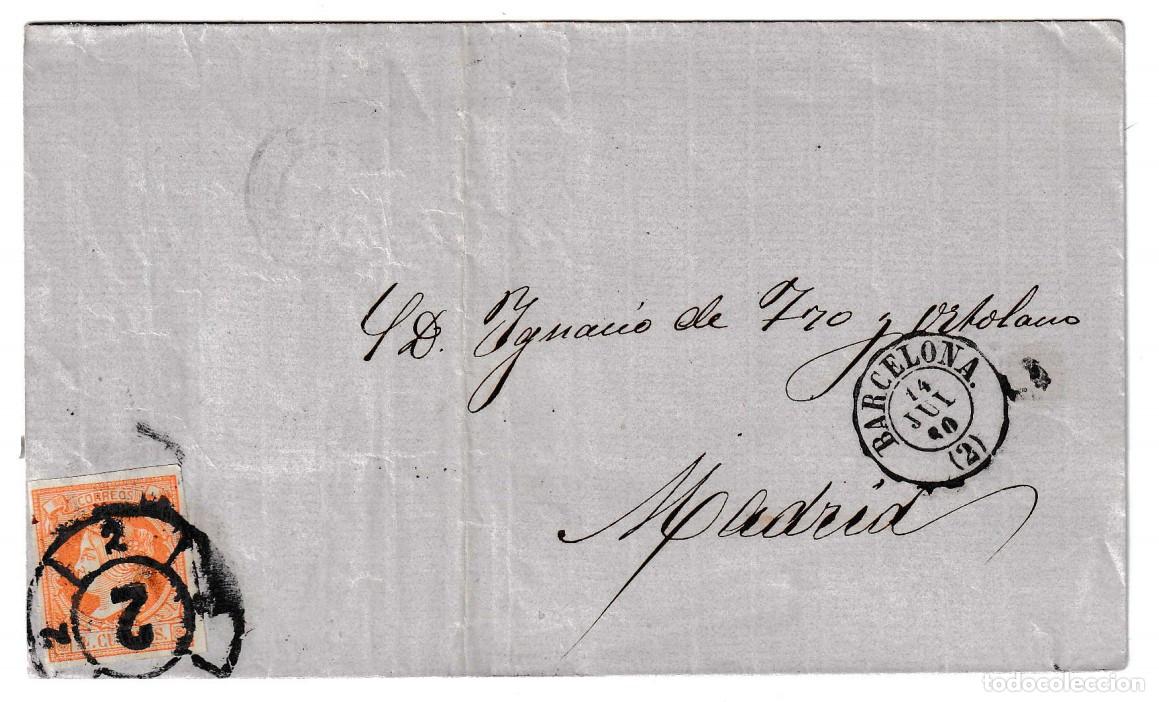 S D. Ygnacio de Fro y Ortolano
BARCELONA.
14
JUL
60
(2)
Madrid
CORREOS
2
2
2
CUARTOS
todocoleccion